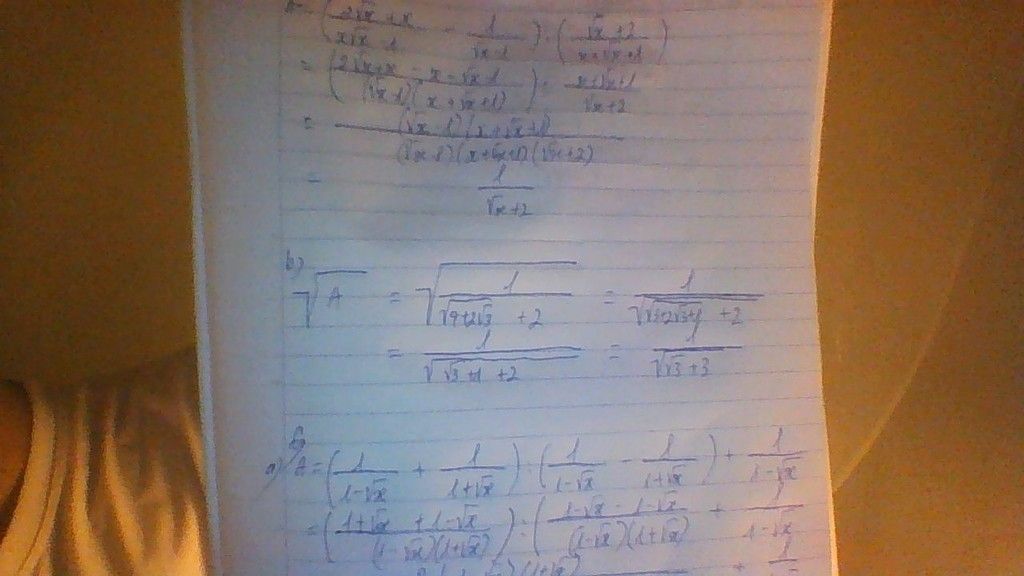 A = ((2√x + x)/(x√x - 1) - 1/(√x - 1)) : ((√x + 2)/(x + √x + 1))
= ((2√x + x - x - √x - 1)/((√x - 1)(x + √x + 1))) · (x + √x + 1)/(√x + 2)
= ((√x - 1)(x + √x + 1))/((√x - 1)(x + √x + 1)(√x + 2))
= 1/(√x + 2)
b)
√A = √(1/(√(4 + 2√3) + 2)) = 1/√(√(3 + 2√3 + 1) + 2)
= 1/√(√3 + 1 + 2) = 1/√(√3 + 3)
a) A = (1/(1 - √x) + 1/(1 + √x)) : (1/(1 - √x) - 1/(1 + √x)) + 1/(1 - √x)
= ((1 + √x + 1 - √x)/((1 - √x)(1 + √x))) : ((1 - √x - 1 - √x)/((1 - √x)(1 + √x))) + 1/(1 - √x)